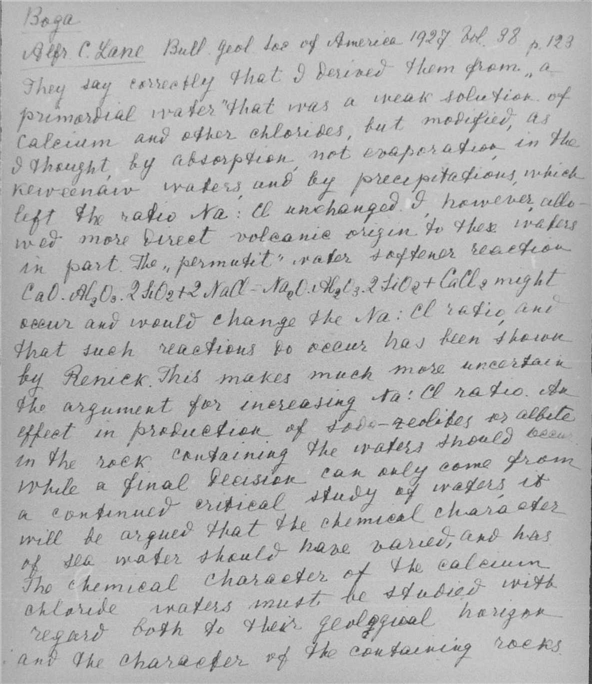 Boga
Alfr C. Lane Bull. geol Soc of America 1927 Vol. 38 p. 123
They say correctly that I derived them from „a
primordial water" that was a weak solution of
Calcium and other chlorides, but modified, as
I thought, by absorption, not evaporation, in the
Keweenaw waters, and by precipitations, which
left the ratio Na : Cl unchanged. I, however, allo-
wed more direct volcanic origin to these waters
in part. The „permutit" water softener reaction
CaO. Al2O3. 2SiO2 + 2 NaCl = Na2O. Al2O3. 2SiO2 + CaCl2 might
occur and would change the Na : Cl ratio, and
that such reactions do occur has been shown
by Renick. This makes much more uncertain
the argument for increasing Na : Cl ratio. An
effect in production of soda-zeolites or albite
in the rock containing the waters should occur
while a final decision can only come from
a continued critical study of waters it
will be argued that the chemical character
of sea water should have varied, and has
The chemical character of the calcium
chloride waters must be studied with
regard both to their geological horizon
and the character of the containing rocks.